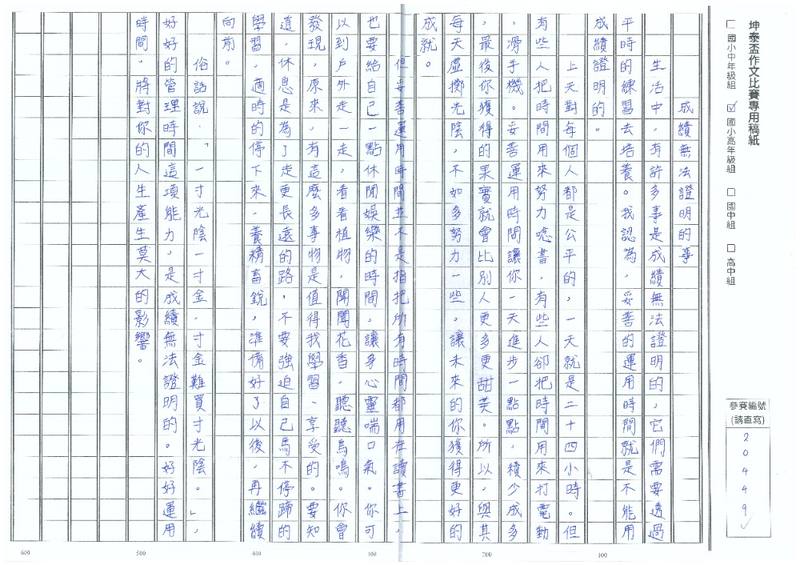 坤泰盃作文比賽專用稿紙
□ 國小中年級組 ☑ 國小高年級組 □ 國中組 □ 高中組
參賽編號
(請直寫)
20449
成績無法證明的事
生活中,有許多事是成績無法證明的,它們需要透過
平時的練習去培養。我認為,妥善的運用時間就是不能用
成績證明的。
上天對每個人都是公平的,一天就是二十四小時。但
有些人把時間用來努力唸書,有些人卻把時間用來打電動
、滑手機。妥善運用時間讓你一天進步一點點,積少成多
,最後你獲得的果實就會比別人更多更甜美。所以,與其
每天虛擲光陰,不如多努力一些,讓未來的你獲得更好的
成就。
但妥善運用時間並不是指把所有時間都用在讀書上,
也要給自己一點休閒娛樂的時間,讓身心靈喘口氣。你可
以到戶外走一走,看看植物,聞聞花香,聽聽鳥鳴。你會
發現,原來,有這麼多事物是值得我學習、享受的。要知
道,休息是為了走更長遠的路,不要強迫自己馬不停蹄的
學習,適時的停下來,養精畜銳,準備好了以後,再繼續
向前。
俗話說:「一寸光陰一寸金,寸金難買寸光陰。」,
好好的管理時間這項能力,是成績無法證明的。好好運用
時間,將對你的人生產生莫大的影響。
100
200
300
400
500
600